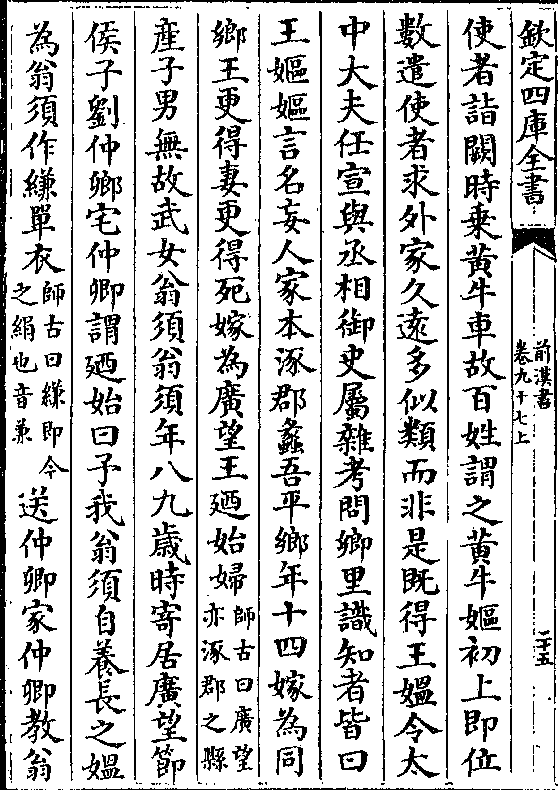 欽定四庫全書
前漢書
卷九十七上
二十五
使者詣闕時乗黃牛車故百姓謂之黃牛嫗初上即位
數遣使者求外家久遠多似類而非是既得王媼令太
中大夫任宣與丞相御史屬雜考問鄉里識知者皆曰
王嫗嫗言名妄人家本涿郡蠡吾平鄉年十四嫁為同
鄉王更得妻更得死嫁為廣望王廼始婦師古曰廣望亦涿郡之縣
産子男無故武女翁須翁須年八九歲時寄居廣望節
侯子劉仲卿宅仲卿謂廼始曰予我翁須自養長之媼
為翁須作縑單衣師古曰縑即今之絹也音兼送仲卿家仲卿教翁